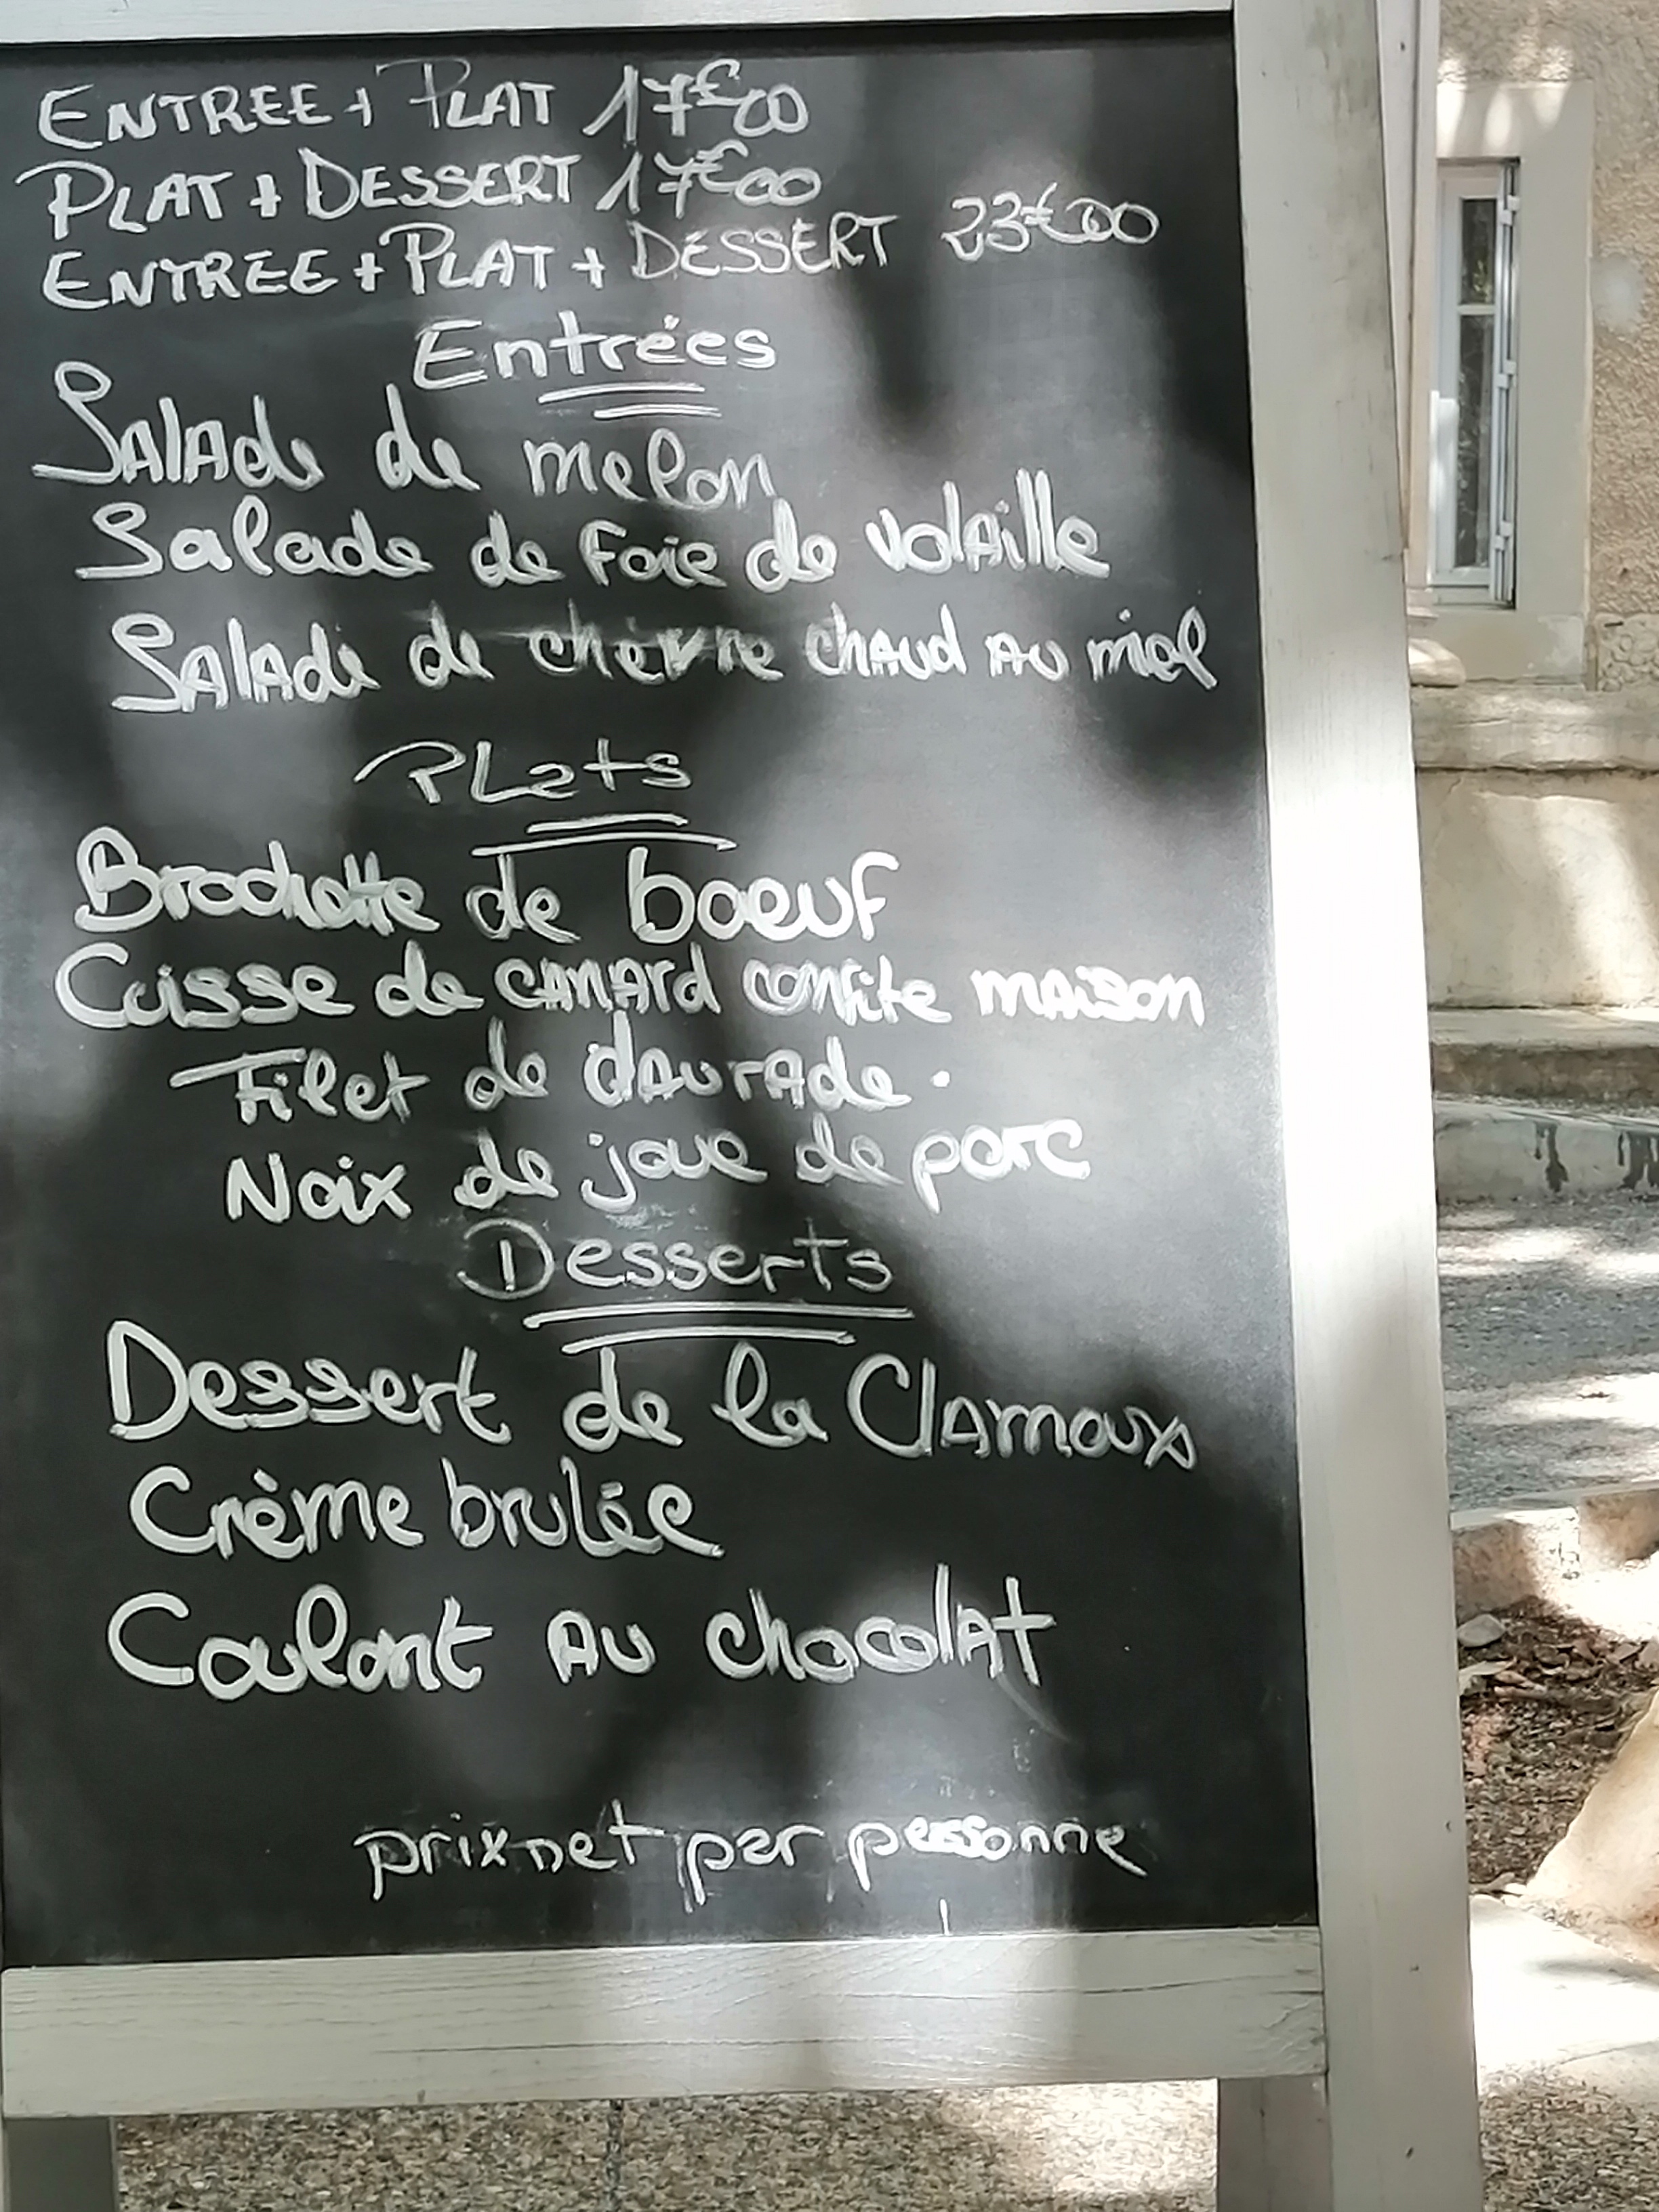 ENTREE + PLAT 17€00
PLAT + DESSERT 17€00
ENTREE + PLAT + DESSERT 23€00
Entrées
Salade de melon
Salade de Foie de volaille
Salade de chèvre chaud au miel
Plats
Brochette de boeuf
Cuisse de canard confite maison
Filet de daurade.
Noix de joue de porc
Desserts
Dessert de la Clamoux
Crème brulée
Coulant au chocolat
prix net par personne